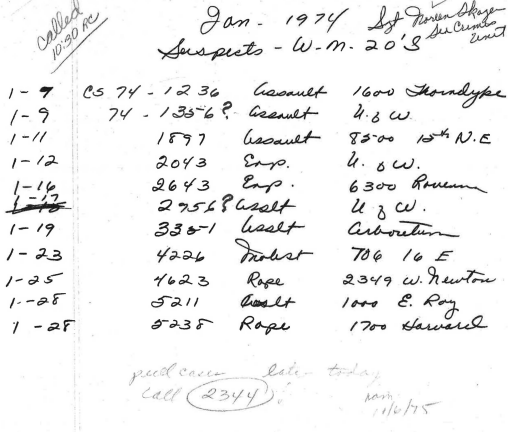 called
10:30 AC
Jan. 1974
Sgt Noreen Skagen
Sex Crimes
Unit
Suspects - W-M. 20'S
1-9 CS 74-1236 Assault 1600 Thorndyke
1-9 74-1356? Assault U. of W.
1-11 1897 Assault 8500 15th N.E
1-12 2043 Exp. U. of W.
1-16 2643 Exp. 6300 Ravenna
1-17 2956? Asslt U of W.
1-19 3351 Asslt Arboretum
1-23 4226 Molest 706 16 E
1-25 4623 Rape 2349 W. Newton
1-28 5211 Asslt 1000 E. Roy
1-28 5238 Rape 1700 Harvard
pull cases later today
call 2344